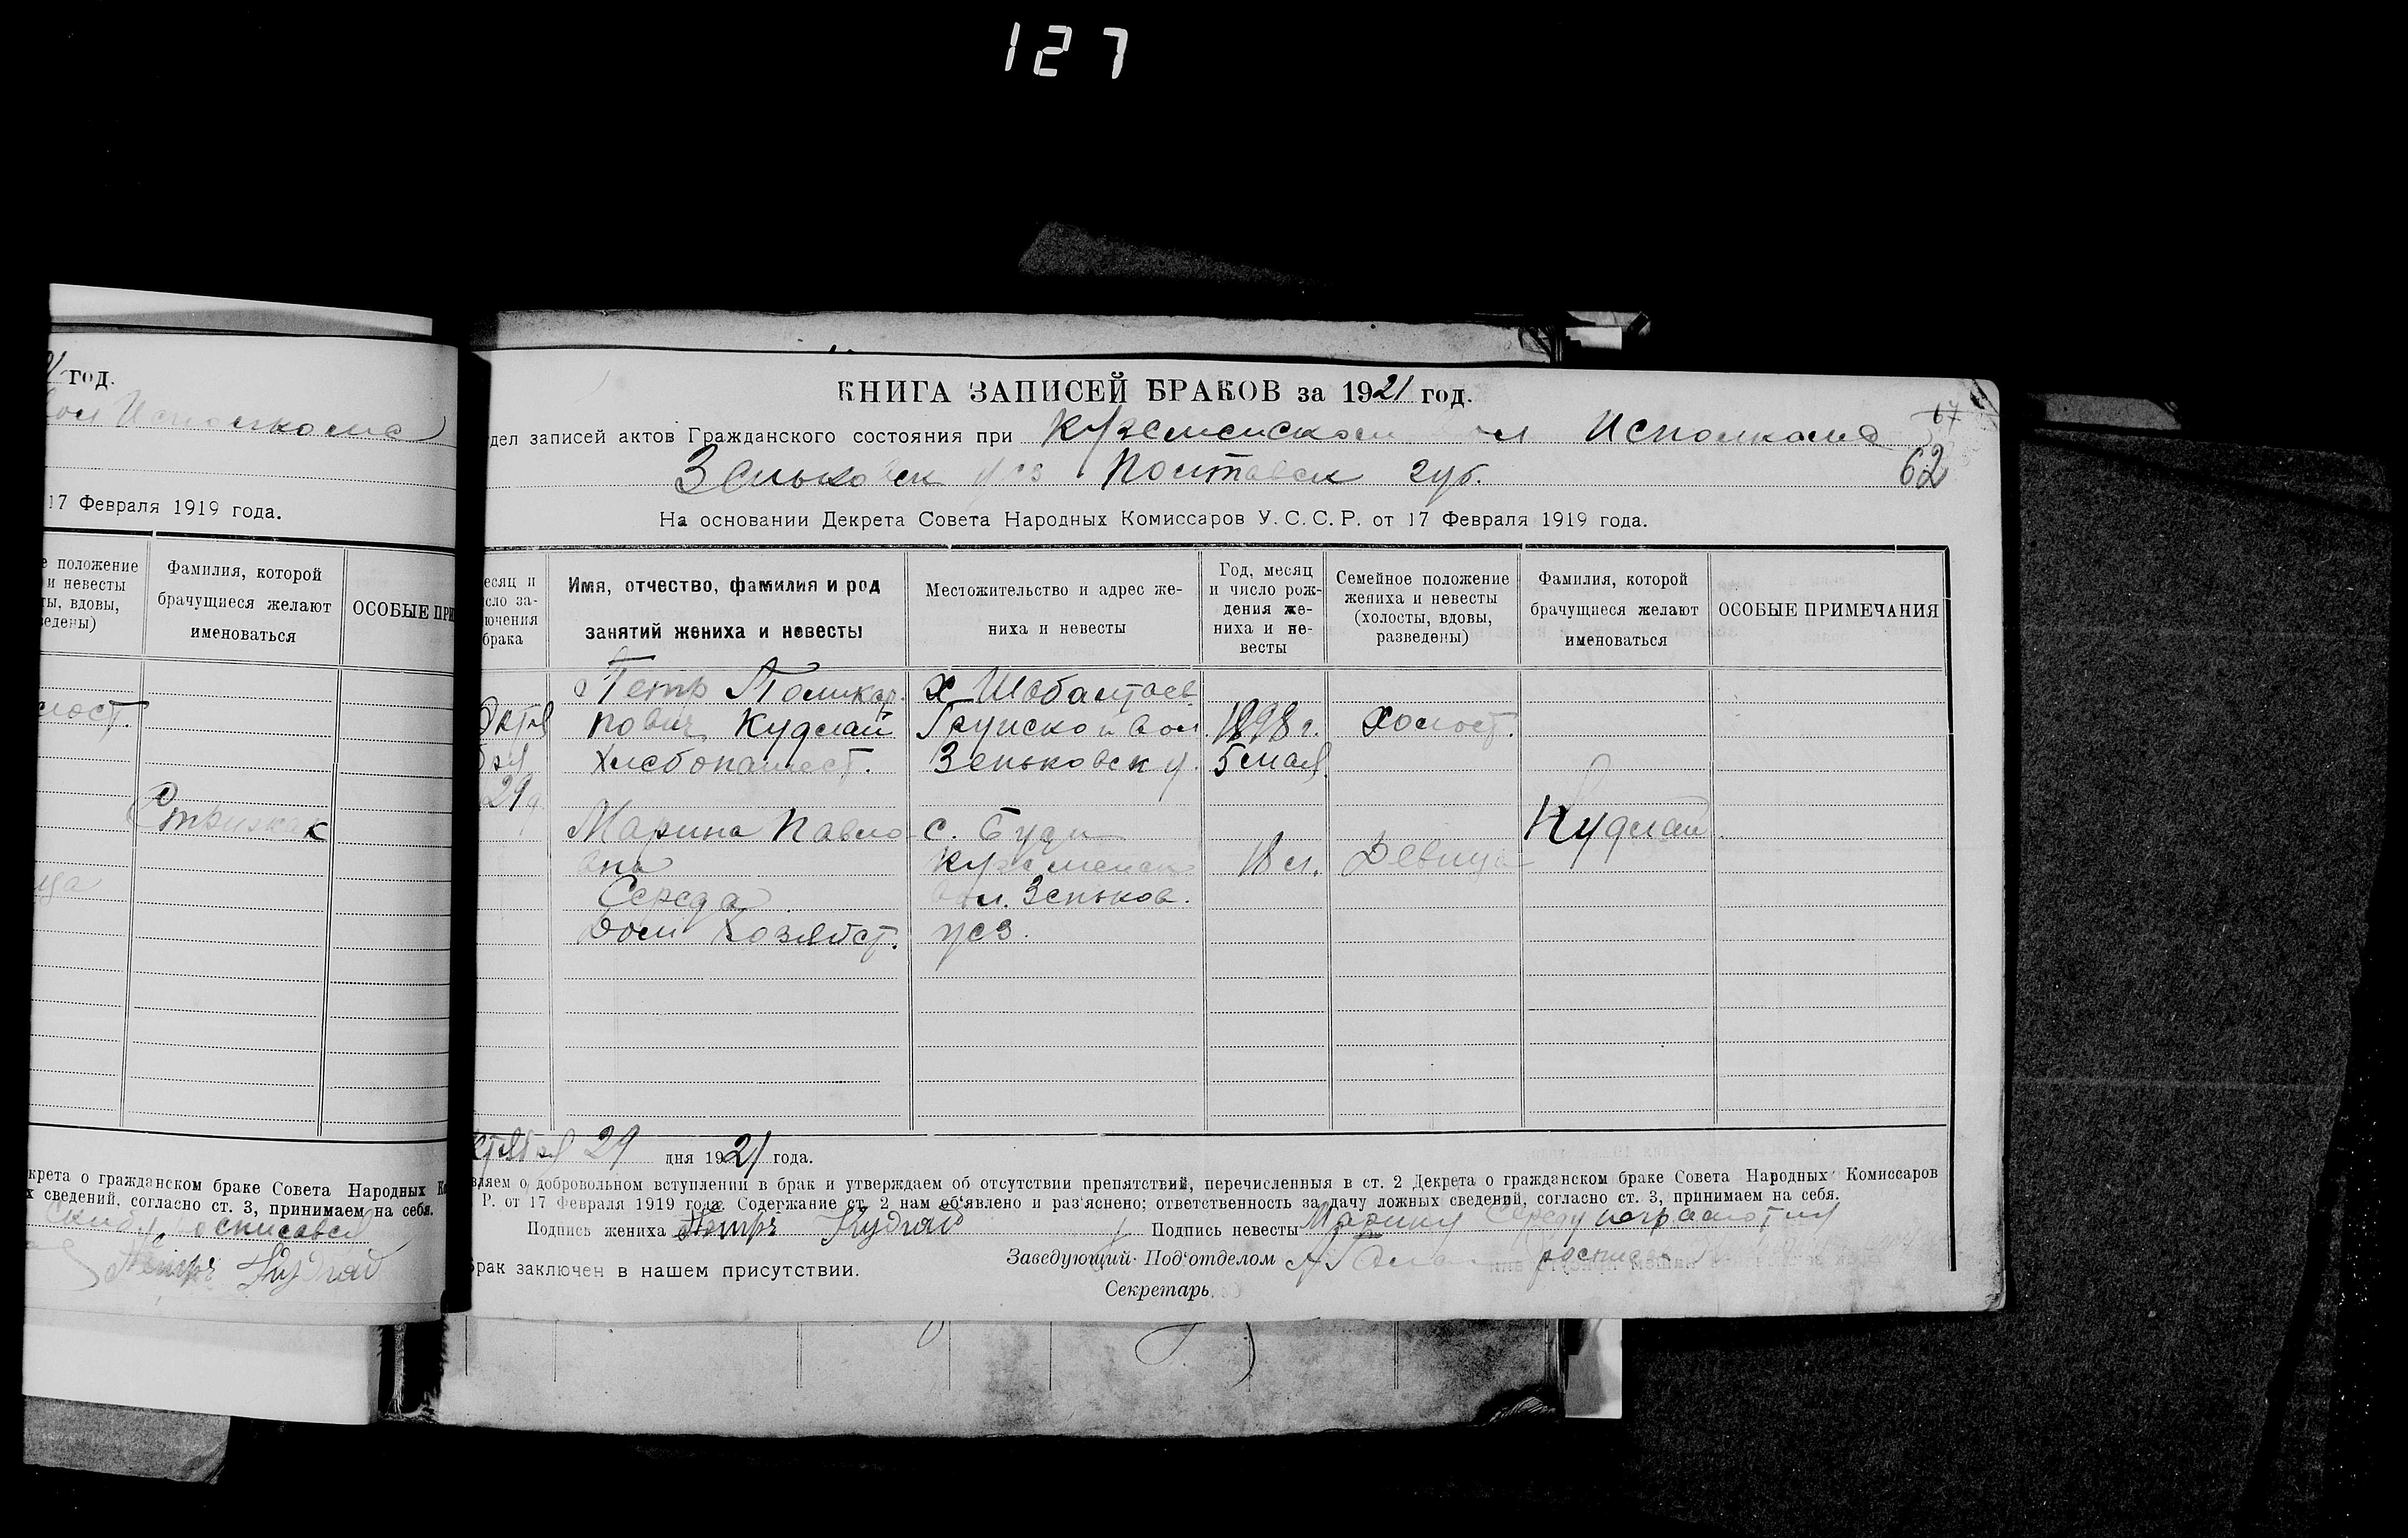 127
21 год.
вол Исполкоме
17 Февраля 1919 года.
е положение
и невесты
ты, вдовы,
едены)
Фамилия, которой
брачущиеся желают
именоваться
ОСОБЫЕ ПРИ
лост.
Стрижак
ица
крета о гражданском браке Совета Народных Ко
х сведений, согласно ст. 3, принимаем на себя.
росписався
Петръ Кудлай
КНИГА ЗАПИСЕЙ БРАКОВ за 1921 год.
67
дел записей актов Гражданского состояния при Куземенском вол Исполкоме
Зеньковск уез Полтавск губ.
62
На основании Декрета Совета Народных Комиссаров У. С. С. Р. от 17 Февраля 1919 года.
есяц и
сло за-
ючения
брака
Имя, отчество, фамилия и род
занятий жениха и невесты
Местожительство и адрес же-
ниха и невесты
Год, месяц
и число рож-
дения же-
ниха и не-
весты
Семейное положение
жениха и невесты
(холосты, вдовы,
разведены)
Фамилия, которой
брачущиеся желают
именоваться
ОСОБЫЕ ПРИМЕЧАНИЯ
Петр Поликар-
Х Шабалтаев
Октя
пович Кудлай
Грунской вол
1898 г.
холост.
бря
Хлебопашест.
Зеньковск у.
5 мая
29
Марина Павло-
с. Буди
Кудлай
вна
Куземенск
18 л.
Девица
Середа
вол. Зеньков.
Дом Хозяйст.
уез.
ктября 29 дня 1921 года.
вляем о добровольном вступлении в брак и утверждаем об отсутствии препятствий, перечисленныя в ст. 2 Декрета о гражданском браке Совета Народных Комиссаров
Р. от 17 Февраля 1919 года. Содержание ст. 2 нам об'явлено и раз'яснено; ответственность за дачу ложных сведений, согласно ст. 3, принимаем на себя.
Подпись жениха Петръ Кудлай Подпись невесты Марину Середу неграмотну
Заведующий Под'отделом
росписал
брак заключен в нашем присутствии.
Секретарь